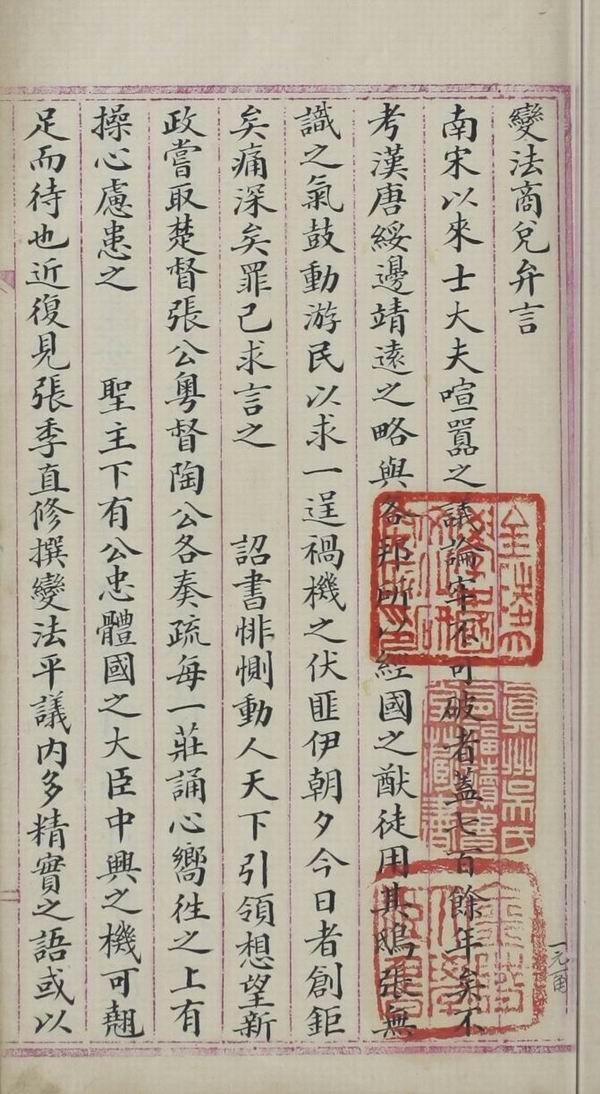 變法商兌弁言
南宋以來士大夫喧囂之議論牢不可破者蓋七百餘年矣不
考漢唐綏邊靖遠之略與各邦所以經國之猷徒用其鴟張無
識之氣鼓動游民以求一逞禍機之伏匪伊朝夕今日者創鉅
矣痛深矣罪己求言之 詔書悱惻動人天下引領想望新
政嘗取楚督張公粵督陶公各奏疏每一莊誦心嚮徃之上有
操心慮患之 聖主下有公忠體國之大臣中興之機可翹
足而待也近復見張季直修撰變法平議內多精實之語或以